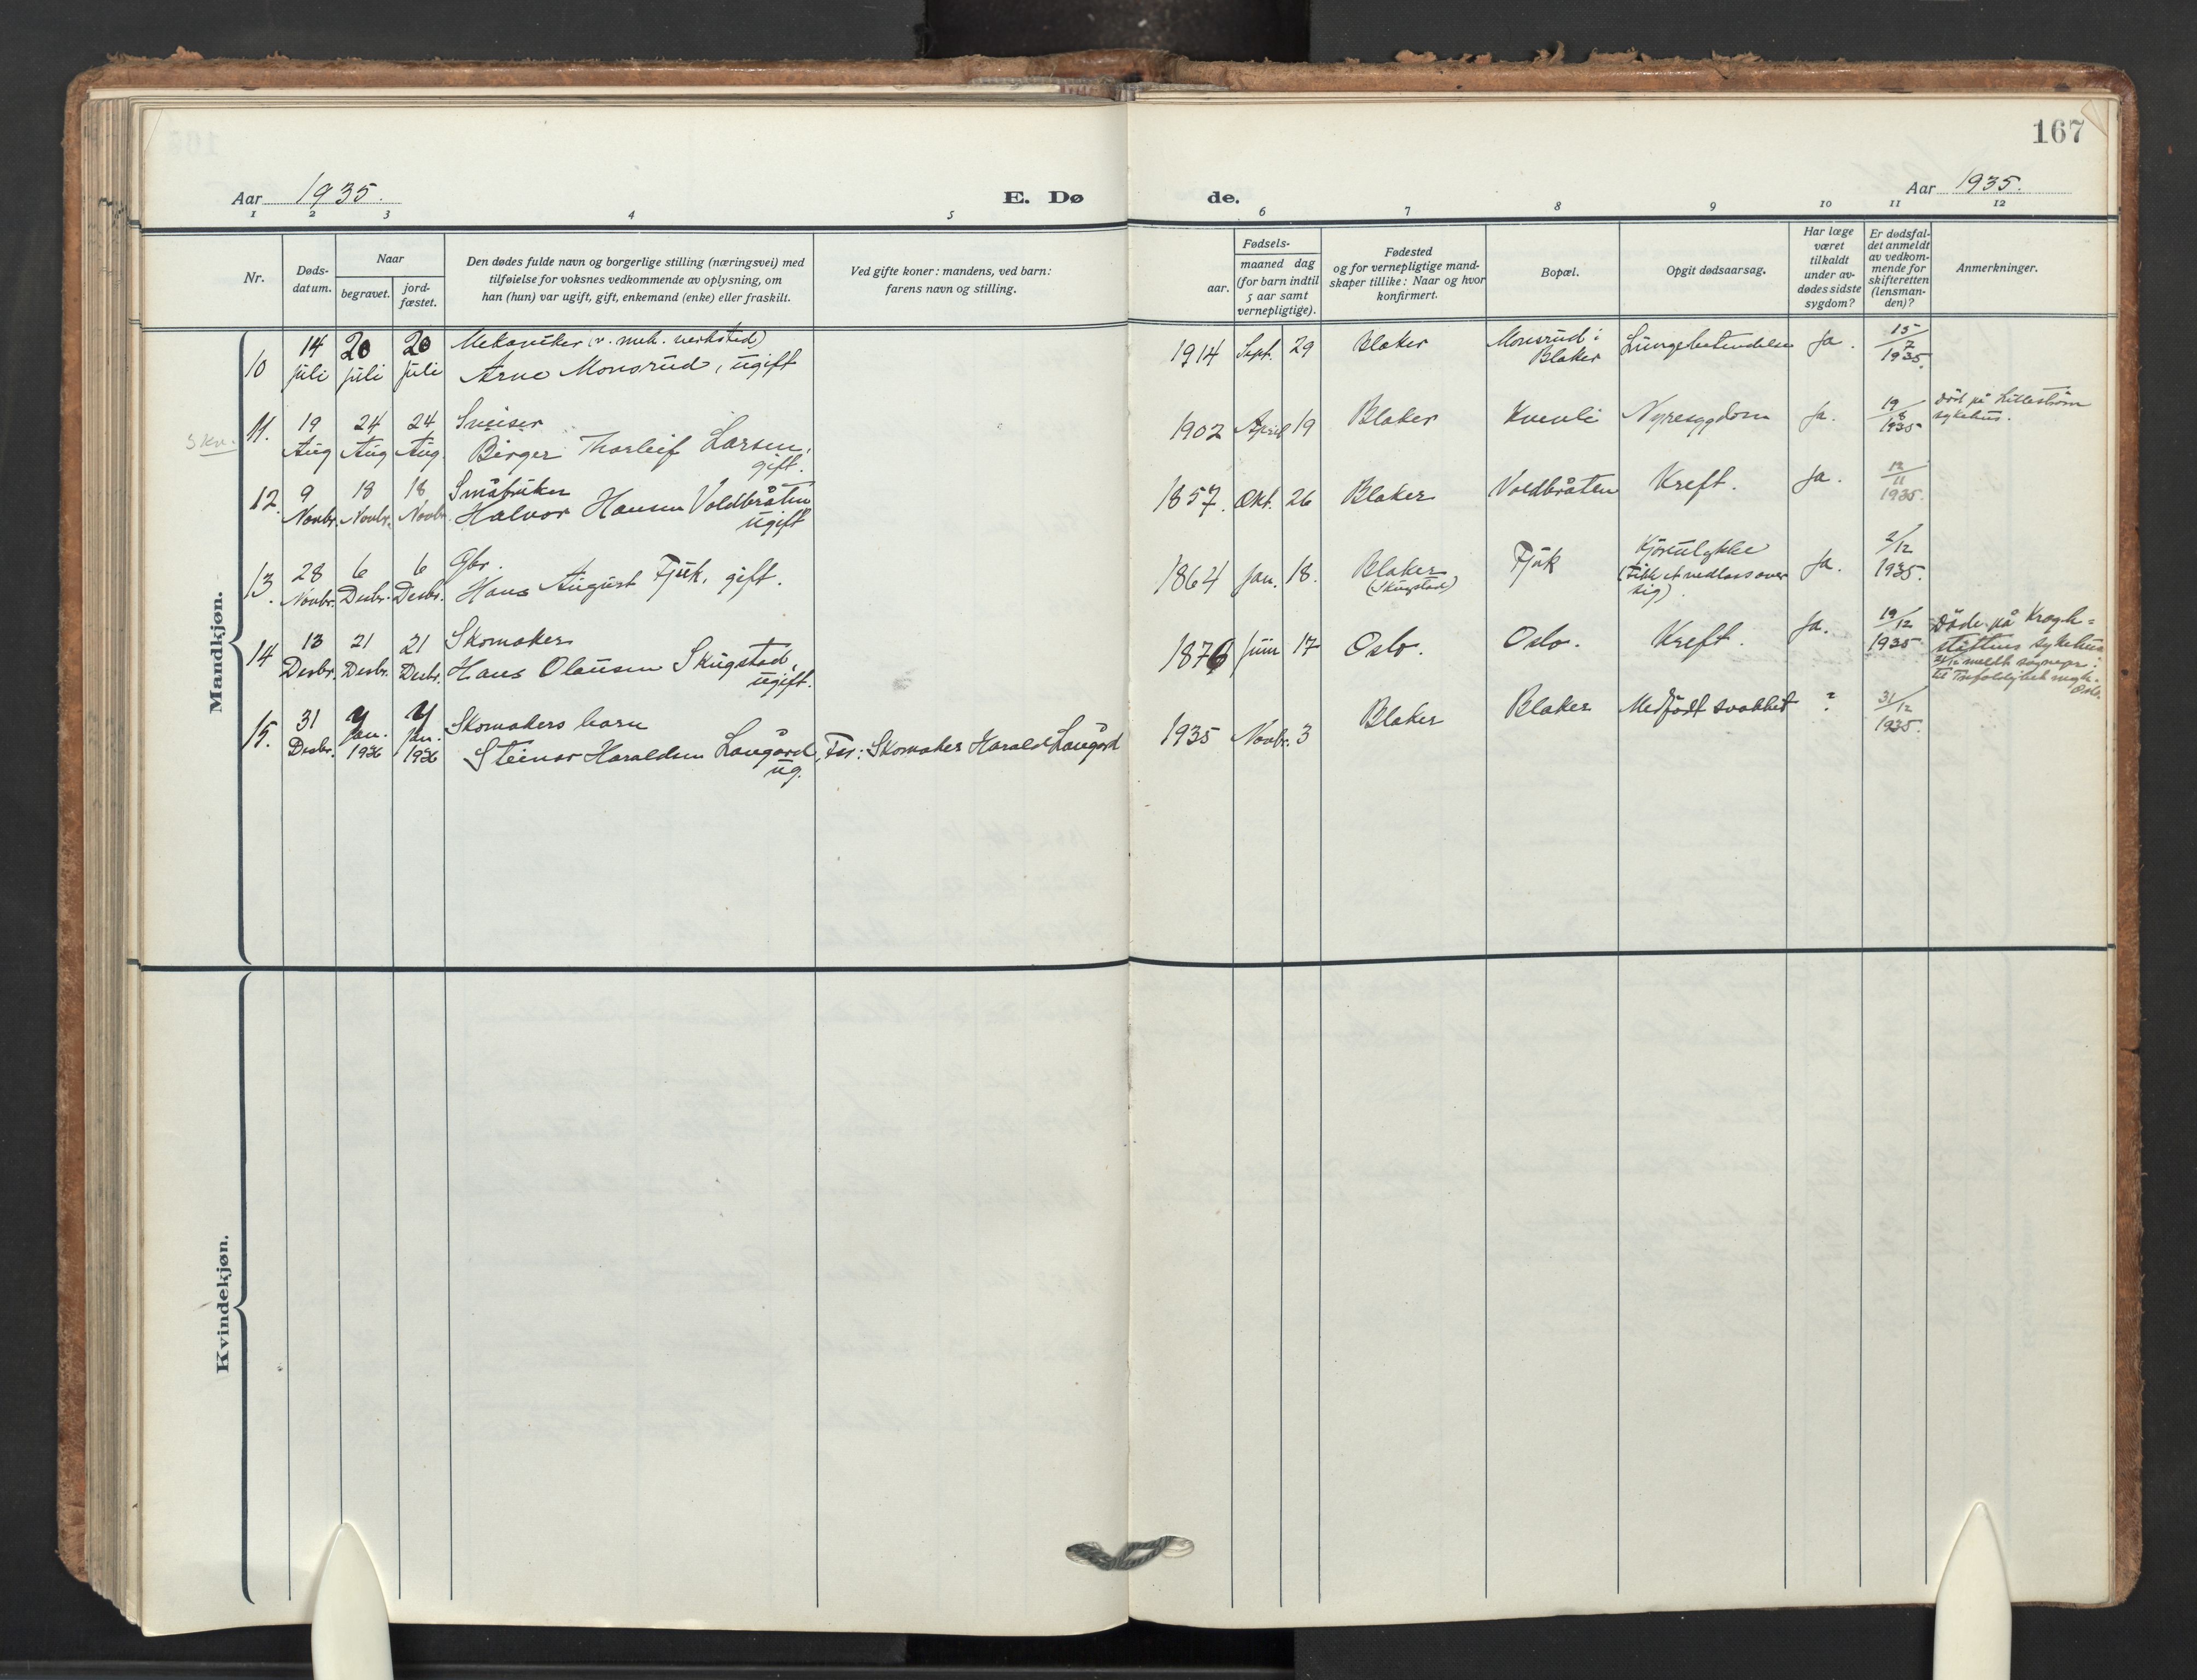 167
Aar 1935.
E. Dø
de.
Aar 1935.
1 2 3 4 5
6 7 8 9 10 11 12
Nr.
Døds-
datum.
Naar
begravet.
jord-
fæstet.
Den dødes fulde navn og borgerlige stilling (næringsvei) med
tilføielse for voksnes vedkommende av oplysning, om
han (hun) var ugift, gift, enkemand (enke) eller fraskilt.
Ved gifte koner: mandens, ved barn:
farens navn og stilling.
Fødsels-
aar.
maaned dag
(for barn indtil
5 aar samt
vernepligtige).
Fødested
og for vernepligtige mand-
skaper tillike: Naar og hvor
konfirmert.
Bopæl.
Opgit dødsaarsag.
Har læge
været
tilkaldt
under av-
dødes sidste
sygdom?
Er dødsfal-
det anmeldt
av vedkom-
mende for
skifteretten
(lensman-
den)?
Anmerkninger.
Mandkjøn.
10 14 juli 20 juli 20 juli Mekaniker (v. mek. verksted)
Arne Monsrud, ugift
1914 Sept. 29 Blaker Monsrud i
Blaker Lungebetendelse Ja. 15/7
1935.
11. 19 Aug 24 Aug 24 Aug. Sveiser
Birger Thorleif Larsen,
gift.
1902 April 19 Blaker Kvenli Nyresygdom Ja. 19/8
1935
Död på Lilleström
sykehus.
12. 9 Novbr. 18 Novbr. 18 Novbr. Småbruker
Halvor Hansen Voldbråten
ugift
1857. Okt. 26 Blaker Voldbråten Kreft. Ja. 12/11
1935.
13. 28 Novbr. 6 Desbr. 6 Desbr. Gbr.
Hans August Fjuk, gift.
1864 Jan. 18. Blaker
(Skugstad)
Fjuk
Kjöreulykke
(Fikk et vedlass over
sig).
Ja. 2/12
1935.
14 13 Desbr. 21 Desbr. 21 Desbr. Skomaker
Hans Olausen Skugstad,
ugift.
1876 Juni 17 Oslo. Oslo. Kreft. Ja. 19/12
1935
Döde på Krogh=
støttens sykehus
meldt sognepr. i
Oslo.
15. 31 Desbr. 4 Jan. 1936 4 Jan. 1936 Skomakers barn
Steinar Haraldsen Laugård,
ug.
Far: Skomaker Harald Laugård
1935 Novbr. 3 Blaker Blaker Medfödt svakhet ? 31/12
1935.
Kvindekjøn.